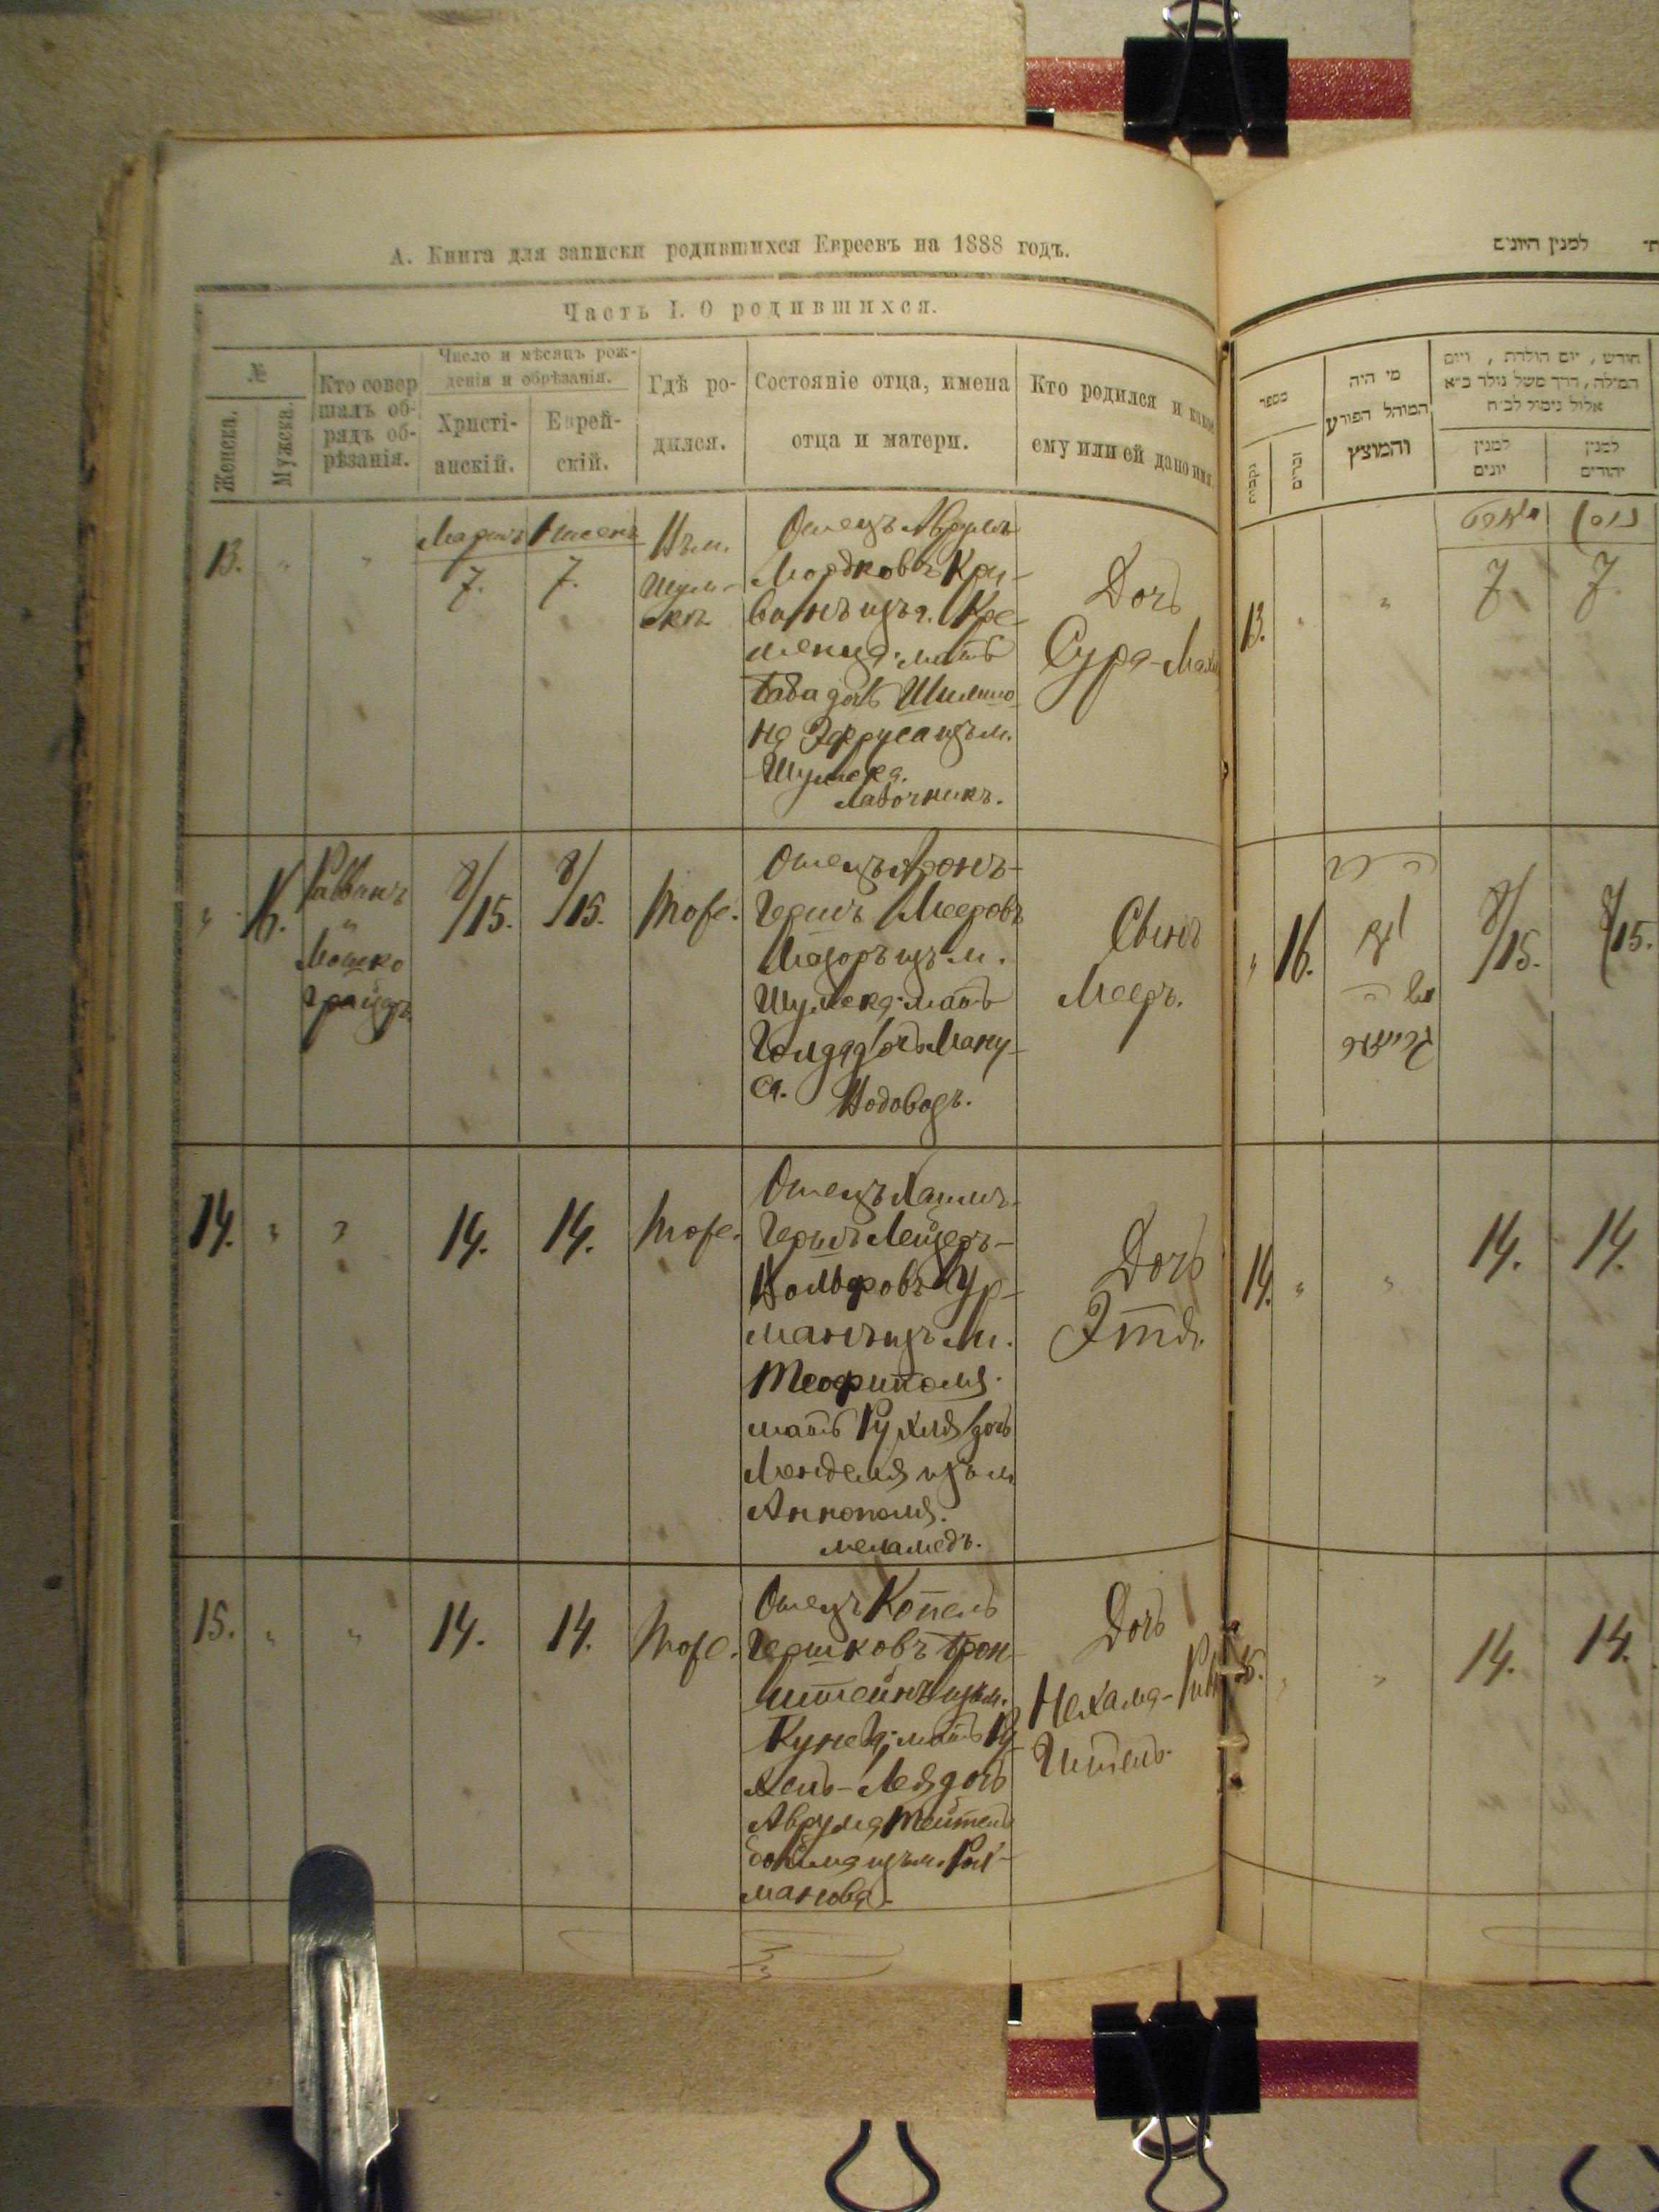 А. Книга для записки родившихся Евреевъ на 1888 годъ.
Часть I. О родившихся.
№
Женска.
Мужска.
Кто совер
шалъ об-
рядъ об-
рѣзанія.
Число и мѣсяцъ рож-
денія и обрѣзанія.
Христі-
анскій.
Еврей-
скій.
Гдѣ ро-
дился.
Состояніе отца, имена
отца и матери.
Кто родился и какое
ему или ей дано имя.
13. " "
Мартъ
7.
Нисонъ
7.
Въ м.
Шум-
скѣ
Отецъ Аврумъ
Мордковъ Кри-
изъ г. Кре-
менца. мать
Таба дочь Шлиомо
на Эфруса изъ м.
Шумска.
лавочникъ.
Дочь
Сура-
" 16.
Раввинъ
"
Мошко
8/15. 8/15. Тоже.
Отецъ Аронъ-
Гершъ Мееровъ
Мазоръ изъ м.
Шумска. мать
Голда дочь Ману-
са. Водовозъ.
Сынъ
Мееръ.
14. " " 14. 14. Тоже.
Отецъ Хаимъ-
Гершъ Лейзеръ-
Вольфовъ Фур-
манъ изъ м.
Теофиполя.
мать Рухля дочь
Менделя изъ м.
Аннополя.
меламедъ.
Дочь
Этля.
15. " " 14. 14. Тоже.
Отецъ Копель
Гершковъ Брон-
штейнъ изъ м.
Кунева; мать Ру-
хель-Лея дочь
Аврума Тейтель
бойма изъ м. Рах-
манова.
Дочь
Нехама-
למנין היונים
מספר
נקבות
זכרים
מי היה
המוהל הפורע
והמוצץ
חודש, יום הולדת, ויום
המילה, דרך משל נולד כ״א
אלול נימול לכ״ח
למנין
יונים
למנין
יהודים
13. " " 7. 7.
ניסן
" 16. 8/15. 8/15.
14. " " 14. 14.
15. " " 14. 14.